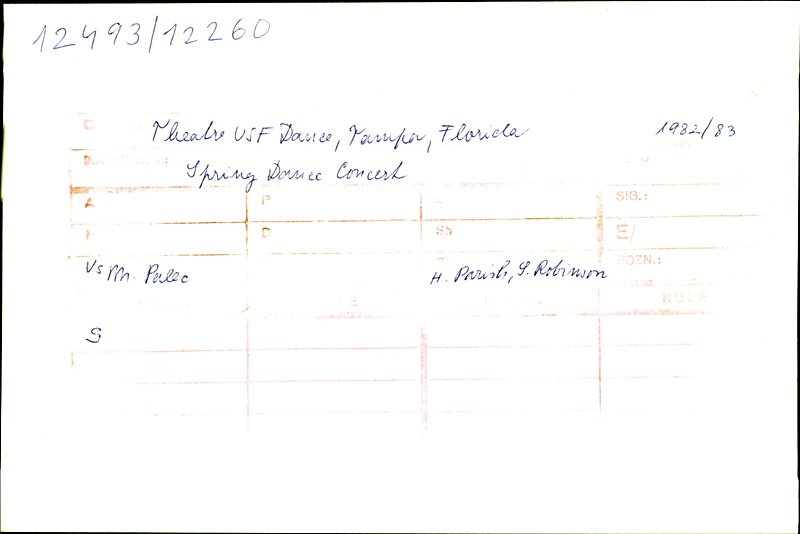 12493/12260
Theatre USF Dance, Tampa, Florida 1982/83
Spring Dance Concert
A P L SIG.:
D Sh E/
Vs M. Palec H. Parish, S. Robinson POZN.:
ROLE
S